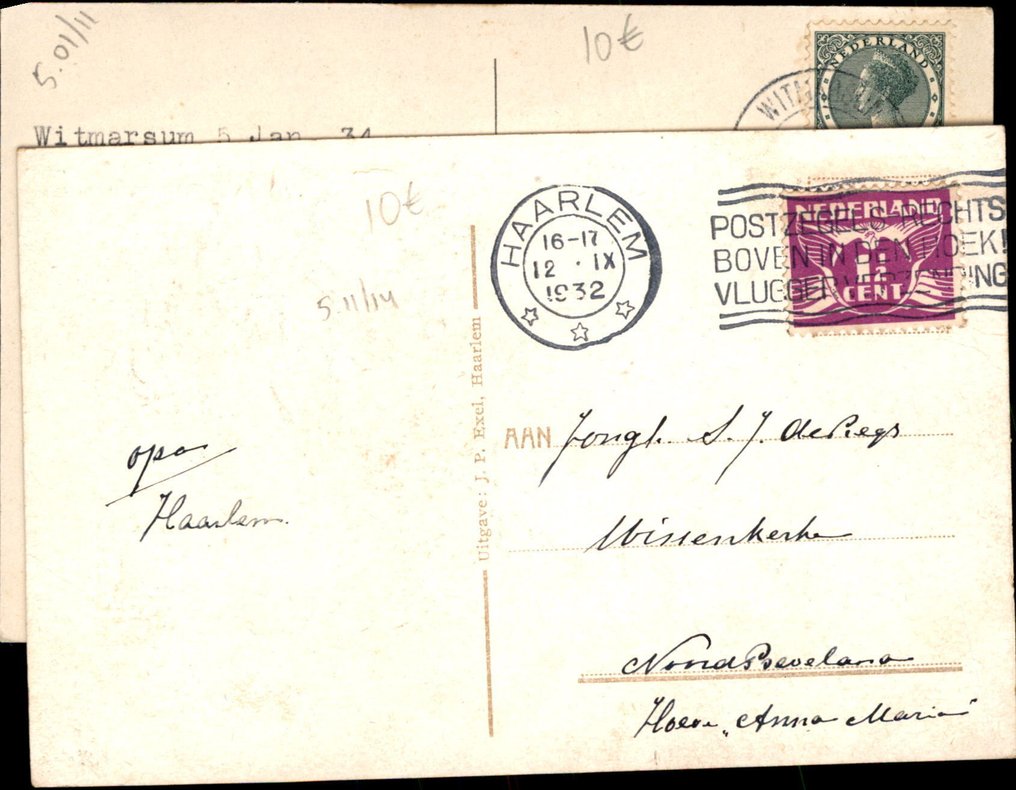 5.01/11
10€
NEDERLAND
Witmarsum 5 Jan. 34
10€
5.11/14
HAARLEM
16-17
12 · IX
1932
POSTZEGELS RECHTS
BOVEN IN DEN HOEK!
VLUGGER VERZENDING
NEDERLAND
1½
CENT
Uitgave: J. P. Exel, Haarlem
AAN Jongh. S. J. de Regs
Wissenkerke
Noord Beveland
Hoeve „Anna Maria"
opa
Haarlem.